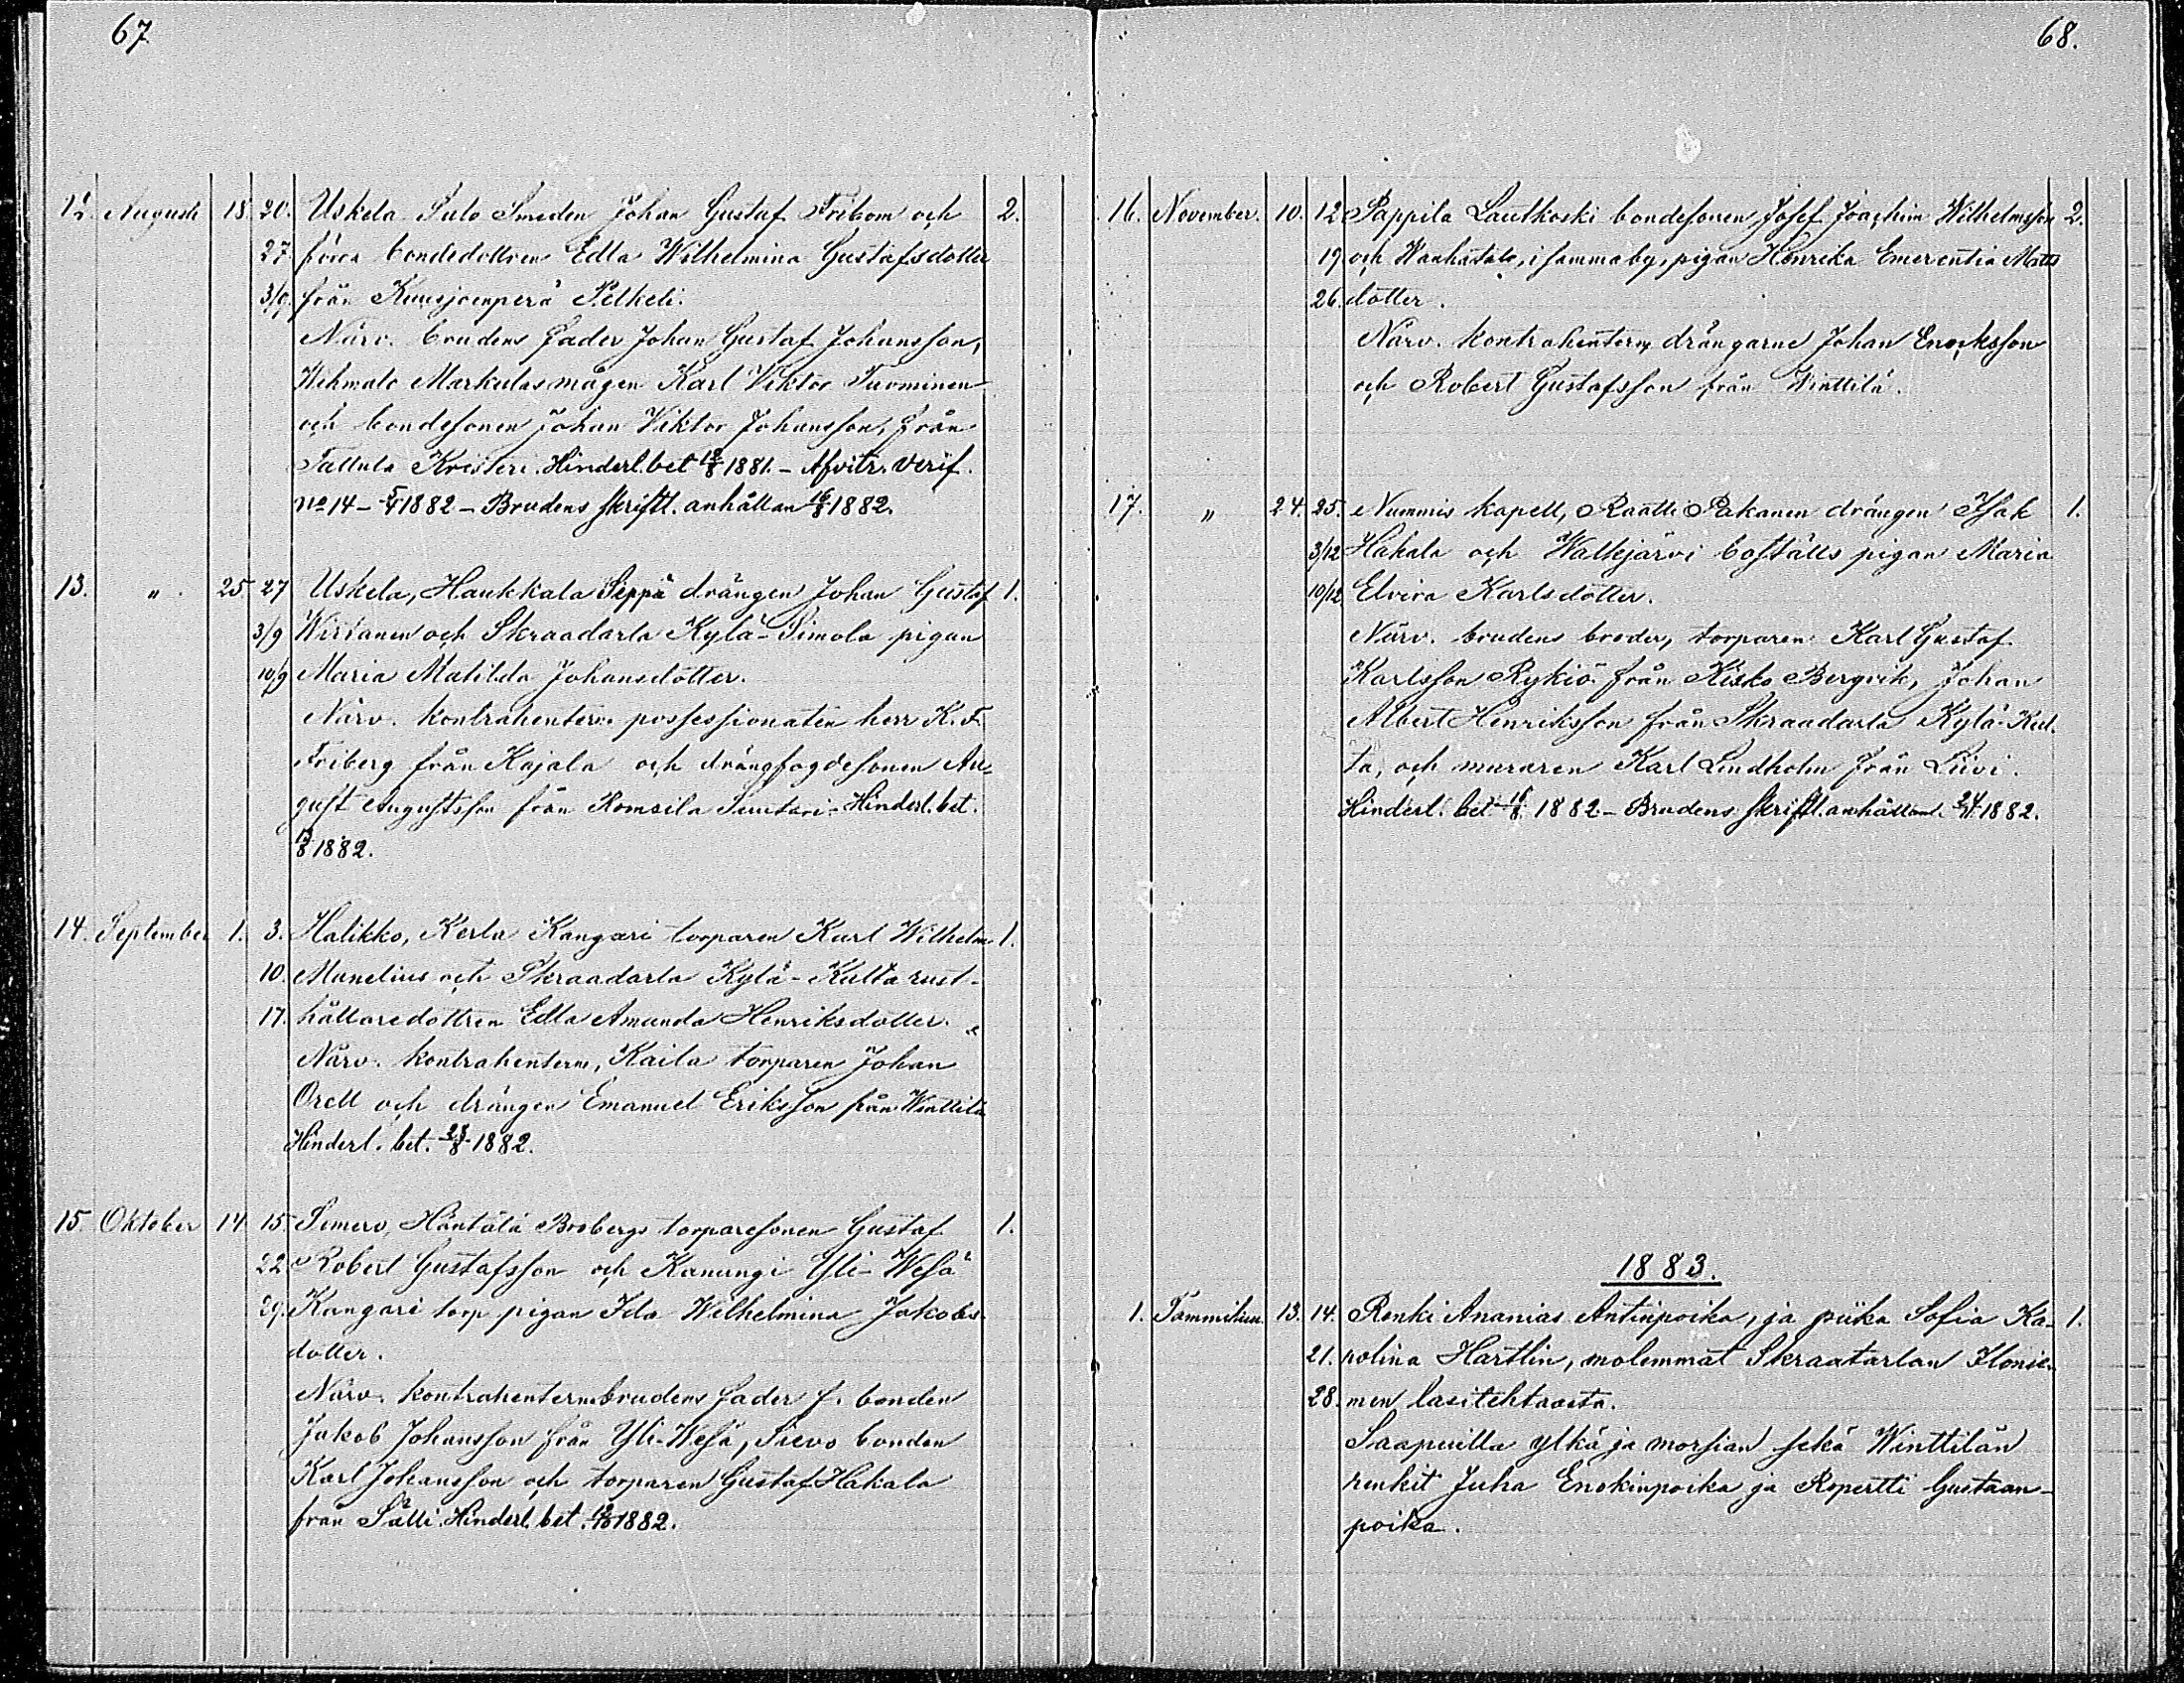 67.
12. Augusti 18. 20. Uskela Salo Smeden Johan Gustaf Fribom och 2.
27. förra bondedottren Edla Wilhelmina Gustafsdotter
3/9. från Kuusjoenperä Pelkeli.
Närv. brudens fader Johan Gustaf Johansson,
Wehmalo Markulas mågen Karl Viktor Tuominen
och bondesonen Johan Viktor Johansson, från
Tattula Kristeri. Hinderl. bet 18/8 1881. – Afvitr. verif.
No 14 – 5/4 1882 – Brudens skriftl. anhållan 16/8 1882.
13. " 25 27 Uskela, Haukkala Seppä drängen Johan Gustaf 1.
3/9 Wirtanen och Skraadarla Kylä-Simola pigan
10/9 Maria Matilda Johansdotter.
Närv. kontrahenterne possessionaten herr K. F.
Friberg från Kajala och drängfogdesonen Au-
gust Augustsson från Romsila Suutari. Hinderl. bet.
19/8 1882.
14. September 1. 3. Halikko, Kerla Kangari torparen Karl Wilhelm 1.
10. Munelius och Skraadarla Kylä-Kulta rust-
17. hållaredottren Edla Amanda Henriksdotter.
Närv. kontrahenterne, Kaila torparen Johan
Orell och drängen Emanuel Eriksson från Winttilä
Hinderl. bet. 28/8 1882.
15. Oktober 14 15. Somero, Häntälä Brobergs torparesonen Gustaf 1.
22. Robert Gustafsson och Kanungi Yli-Wesä
29. Kangari torp pigan Ida Wilhelmina Jakobs-
dotter.
Närv. kontrahenterne brudens fader f. bonden
Jakob Johansson från Yli-Wesä, Sievo bonden
Karl Johansson och torparen Gustaf Hakala
från Sälli. Hinderl. bet. 1882.
68.
16. November. 10. 12. Pappila Lautkoski bondesonen Josef Joachim Wilhelmsson 2.
19 och Wanhatalo, i samma by, pigan Henrika Emerentia Matts
26. dotter.
Närv. kontrahenterne drängarne Johan Enocksson
och Robert Gustafsson från Winttilä.
17. " 24. 25. Nummis kapell, Raatti Pakanen drängen Isak 1.
3/12 Hakala och Walkjärvi boställs pigan Maria
10/12 Elvira Karlsdotter.
Närv. brudens broder, torparen Karl Gustaf
Karlsson Rykiö från Kisko Bergvik, Johan
Albert Henriksson från Skraadarla Kylä-Kul-
ta, och muraren Karl Lindholm från Liivi.
Hinderl. bet. 1882 – Brudens skriftl. anhållan 24/11 1882.
1883.
1. Tammikuu. 13. 14. Renki Ananias Antinpoika, ja piika Sofia Ka- 1.
21. rolina Hartlin, molemmat Skraatarlan Ilonie-
28. men lasitehtaasta.
Saapuilla ylkä ja morsian sekä Winttilän
renkit Juha Enokinpoika ja Ropertti Gustaan-
poika.